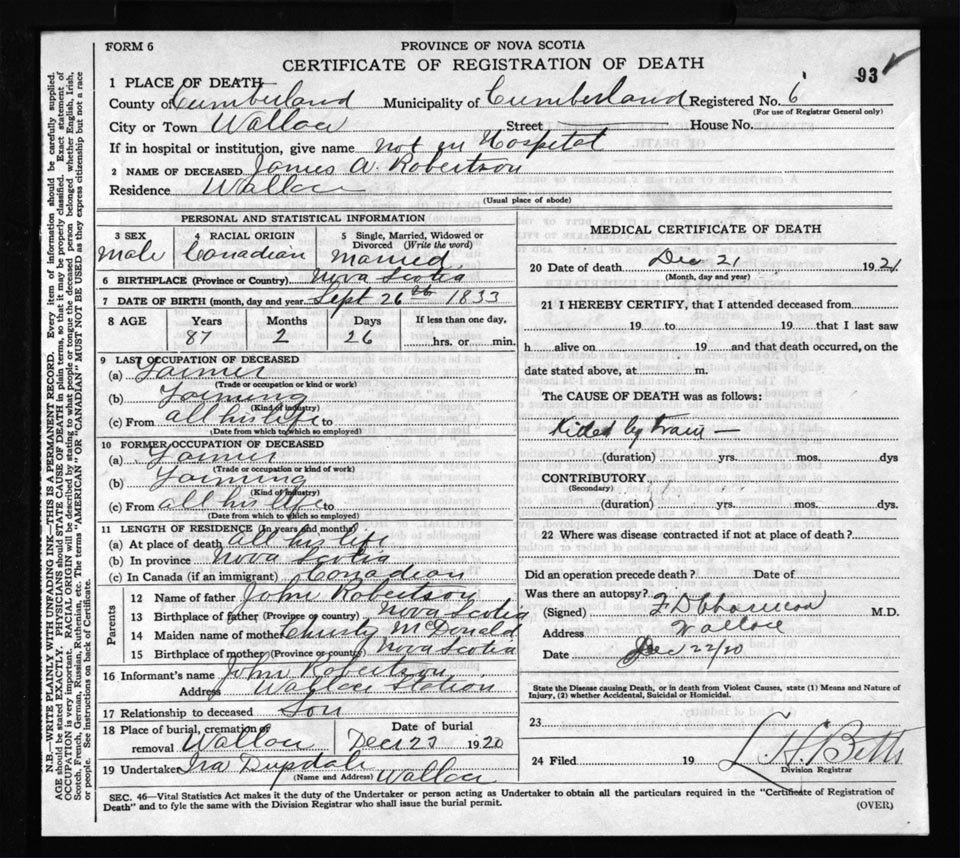 FORM 6
PROVINCE OF NOVA SCOTIA
CERTIFICATE OF REGISTRATION OF DEATH
93
1 PLACE OF DEATH
County of Cumberland Municipality of Cumberland Registered No. 6
(For use of Registrar General only)
City or Town Wallace Street House No.
If in hospital or institution, give name not in Hospital
2 NAME OF DECEASED James A. Robertson
Residence Wallace
(Usual place of abode)
PERSONAL AND STATISTICAL INFORMATION
3 SEX 4 RACIAL ORIGIN 5 Single, Married, Widowed or Divorced (Write the word)
Male Canadian Married
6 BIRTHPLACE (Province or Country) Nova Scotia
7 DATE OF BIRTH (month, day and year) Sept 26th 1833
8 AGE Years Months Days If less than one day,
87 2 26 hrs. or min.
9 LAST OCCUPATION OF DECEASED
(a) Farmer
(Trade or occupation or kind or work)
(b) Farming
(Kind of industry)
(c) From all his life to
(Date from which to which so employed)
10 FORMER OCCUPATION OF DECEASED
(a) Farmer
(Trade or occupation or kind of work)
(b) Farming
(Kind of industry)
(c) From all his life to
(Date from which to which so employed)
11 LENGTH OF RESIDENCE (In years and months)
(a) At place of death all his life
(b) In province Nova Scotia
(c) In Canada (if an immigrant) Canadian
Parents
12 Name of father John Robertson
13 Birthplace of father (Province or country) Nova Scotia
14 Maiden name of mother Christy McDonald
15 Birthplace of mother (Province or country) Nova Scotia
16 Informant's name John Robertson
Address Wallace Station
17 Relationship to deceased Son
18 Place of burial, cremation or removal Wallace Date of burial Dec 23 1920
19 Undertaker Ira Wallace
(Name and Address)
MEDICAL CERTIFICATE OF DEATH
20 Date of death Dec 21 1921
(Month, day and year)
21 I HEREBY CERTIFY, that I attended deceased from
19 to 19 that I last saw
h alive on 19 and that death occurred, on the
date stated above, at m.
The CAUSE OF DEATH was as follows:
Killed by train —
(duration) yrs. mos. dys
CONTRIBUTORY
(Secondary)
(duration) yrs. mos. dys.
22 Where was disease contracted if not at place of death?
Did an operation precede death? Date of
Was there an autopsy?
(Signed) M.D.
Address Wallace
Date Dec 22/20
State the Disease causing Death, or in death from Violent Causes, state (1) Means and Nature of Injury, (2) whether Accidental, Suicidal or Homicidal.
23
24 Filed 19 Betts
Division Registrar
SEC. 46—Vital Statistics Act makes it the duty of the Undertaker or person acting as Undertaker to obtain all the particulars required in the "Certificate of Registration of
Death" and to fyle the same with the Division Registrar who shall issue the burial permit.
(OVER)
N.B.—WRITE PLAINLY WITH UNFADING INK—THIS IS A PERMANENT RECORD. Every item of information should be carefully supplied.
AGE should be stated EXACTLY. PHYSICIANS should STATE CAUSE OF DEATH in plain terms, so that it may be properly classified. Exact statement of
OCCUPATION is very important. RACIAL ORIGIN will be described by stating to what people or tongue the deceased person belonged whether English, Irish,
Scotch, French, German, Russian, Ruthenian, etc. The terms "AMERICAN" OR "CANADIAN" MUST NOT BE USED as they express citizenship but not a race
or people. See instructions on back of Certificate.